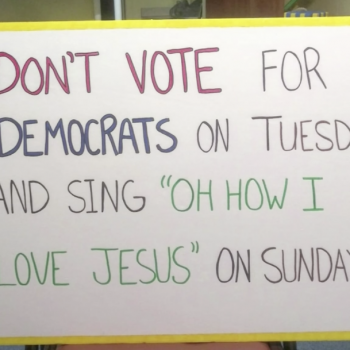 DON'T VOTE FOR
DEMOCRATS ON TUESD
AND SING "OH HOW I
LOVE JESUS" ON SUNDAY